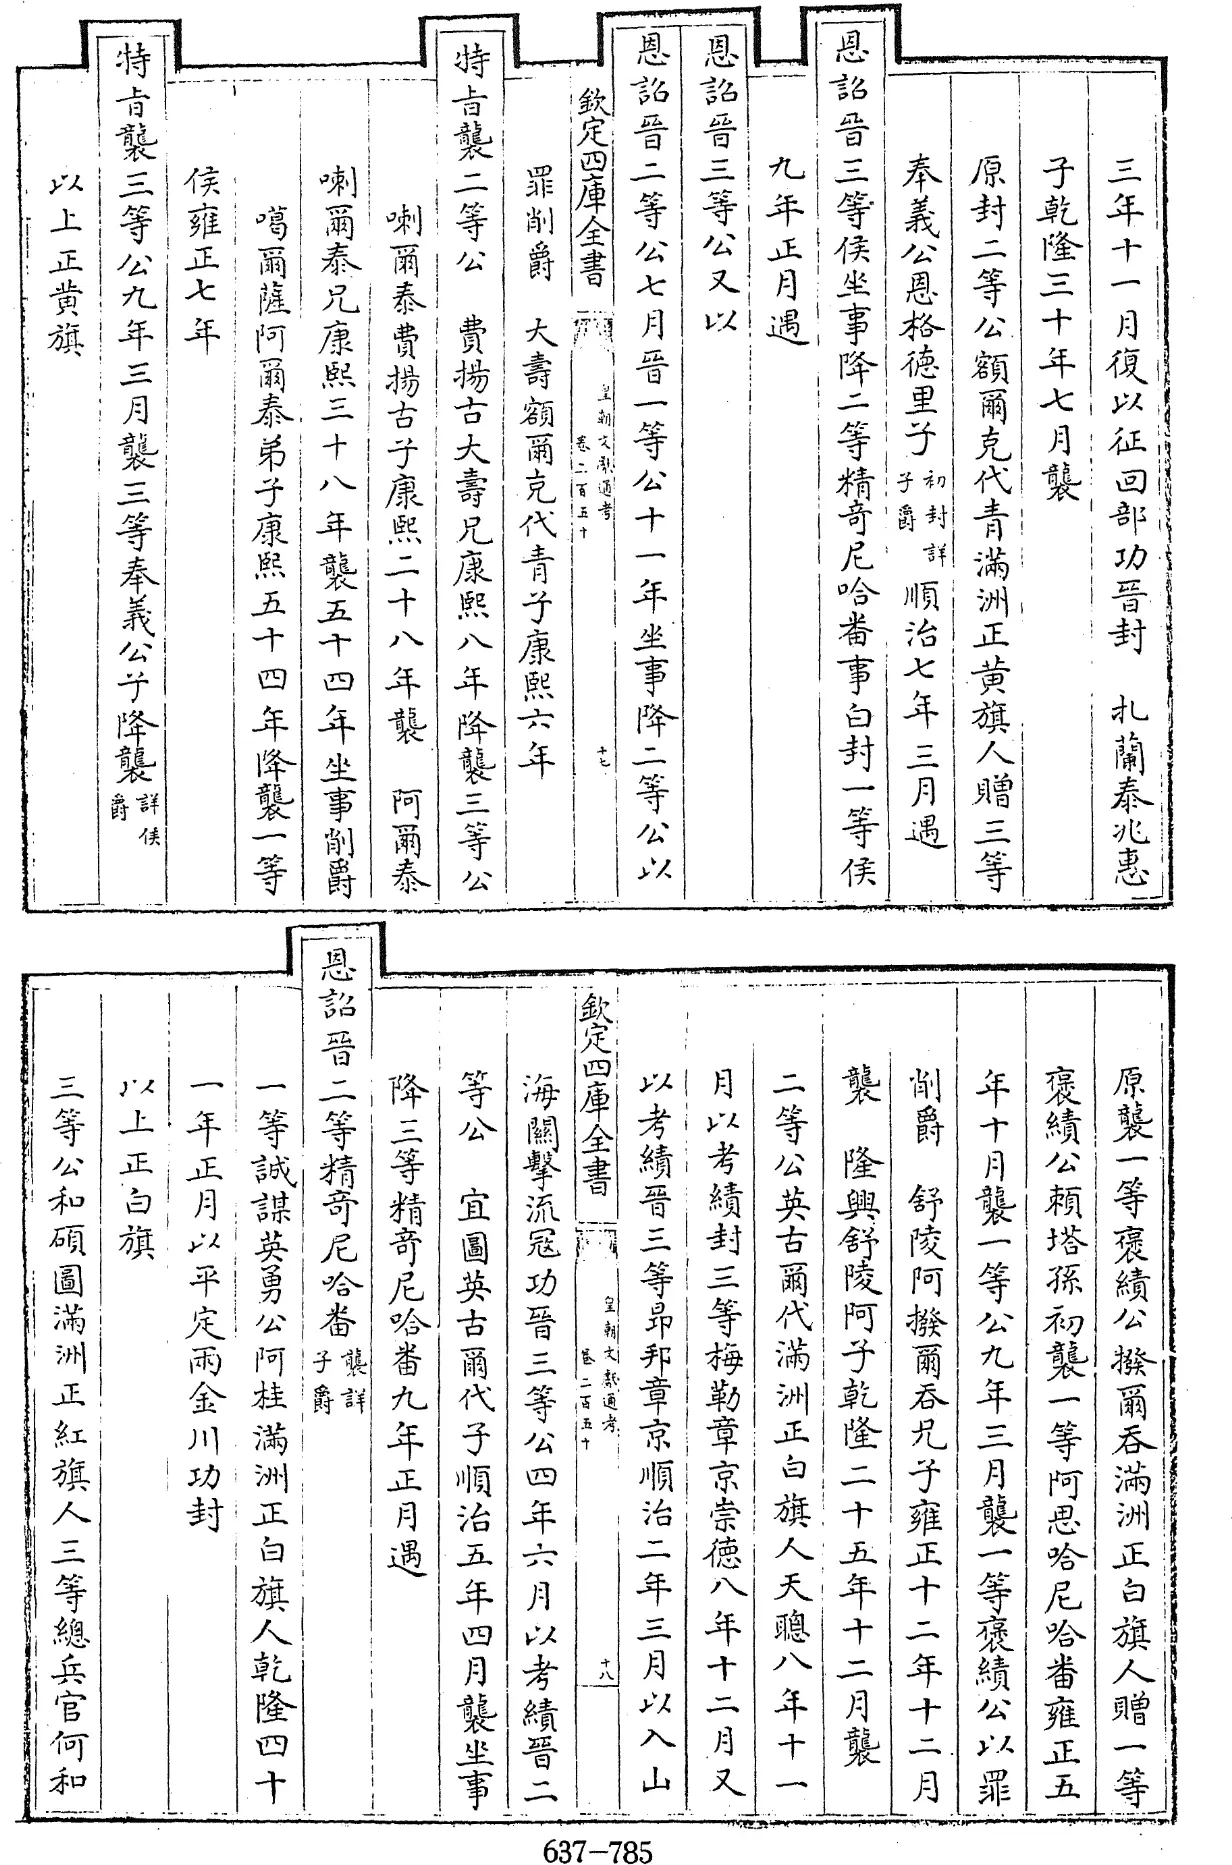 三年十一月復以征回部功晉封　扎蘭泰兆惠
子乾隆三十年七月襲
原封二等公額爾克代青滿洲正黃旗人贈三等
奉義公恩格德里子初封詳子爵順治七年三月遇
恩詔晉三等侯坐事降二等精竒尼哈番事白封一等侯
九年正月遇
恩詔晉三等公又以
恩詔晉二等公七月晉一等公十一年坐事降二等公以
欽定四庫全書　皇朝文獻通考卷二百五十　十七
罪削爵　大壽額爾克代青子康熙六年
特旨襲二等公　費揚古大壽兄康熙八年降襲三等公
喇爾泰費揚古子康熙二十八年襲　阿爾泰
喇爾泰兄康熙三十八年襲五十四年坐事削爵
噶爾薩阿爾泰弟子康熙五十四年降襲一等
侯雍正七年
特旨襲三等公九年三月襲三等奉義公子降襲詳侯爵
以上正黃旗
原襲一等褒績公撥爾吞滿洲正白旗人贈一等
褒績公賴塔孫初襲一等阿思哈尼哈番雍正五
年十月襲一等公九年三月襲一等褒績公以罪
削爵　舒陵阿撥爾吞兄子雍正十二年十二月
襲　隆興舒陵阿子乾隆二十五年十二月襲
二等公英古爾代滿洲正白旗人天聰八年十一
月以考績封三等梅勒章京崇德八年十二月又
以考績晉三等昂邦章京順治二年三月以入山
欽定四庫全書　皇朝文獻通考卷二百五十　十八
海關擊流冦功晉三等公四年六月以考績晉二
等公　宜圖英古爾代子順治五年四月襲坐事
降三等精竒尼哈番九年正月遇
恩詔晉二等精竒尼哈番襲詳子爵
一等誠謀英勇公阿桂滿洲正白旗人乾隆四十
一年正月以平定兩金川功封
以上正白旗
三等公和碩圖滿洲正紅旗人三等總兵官何和
637-785